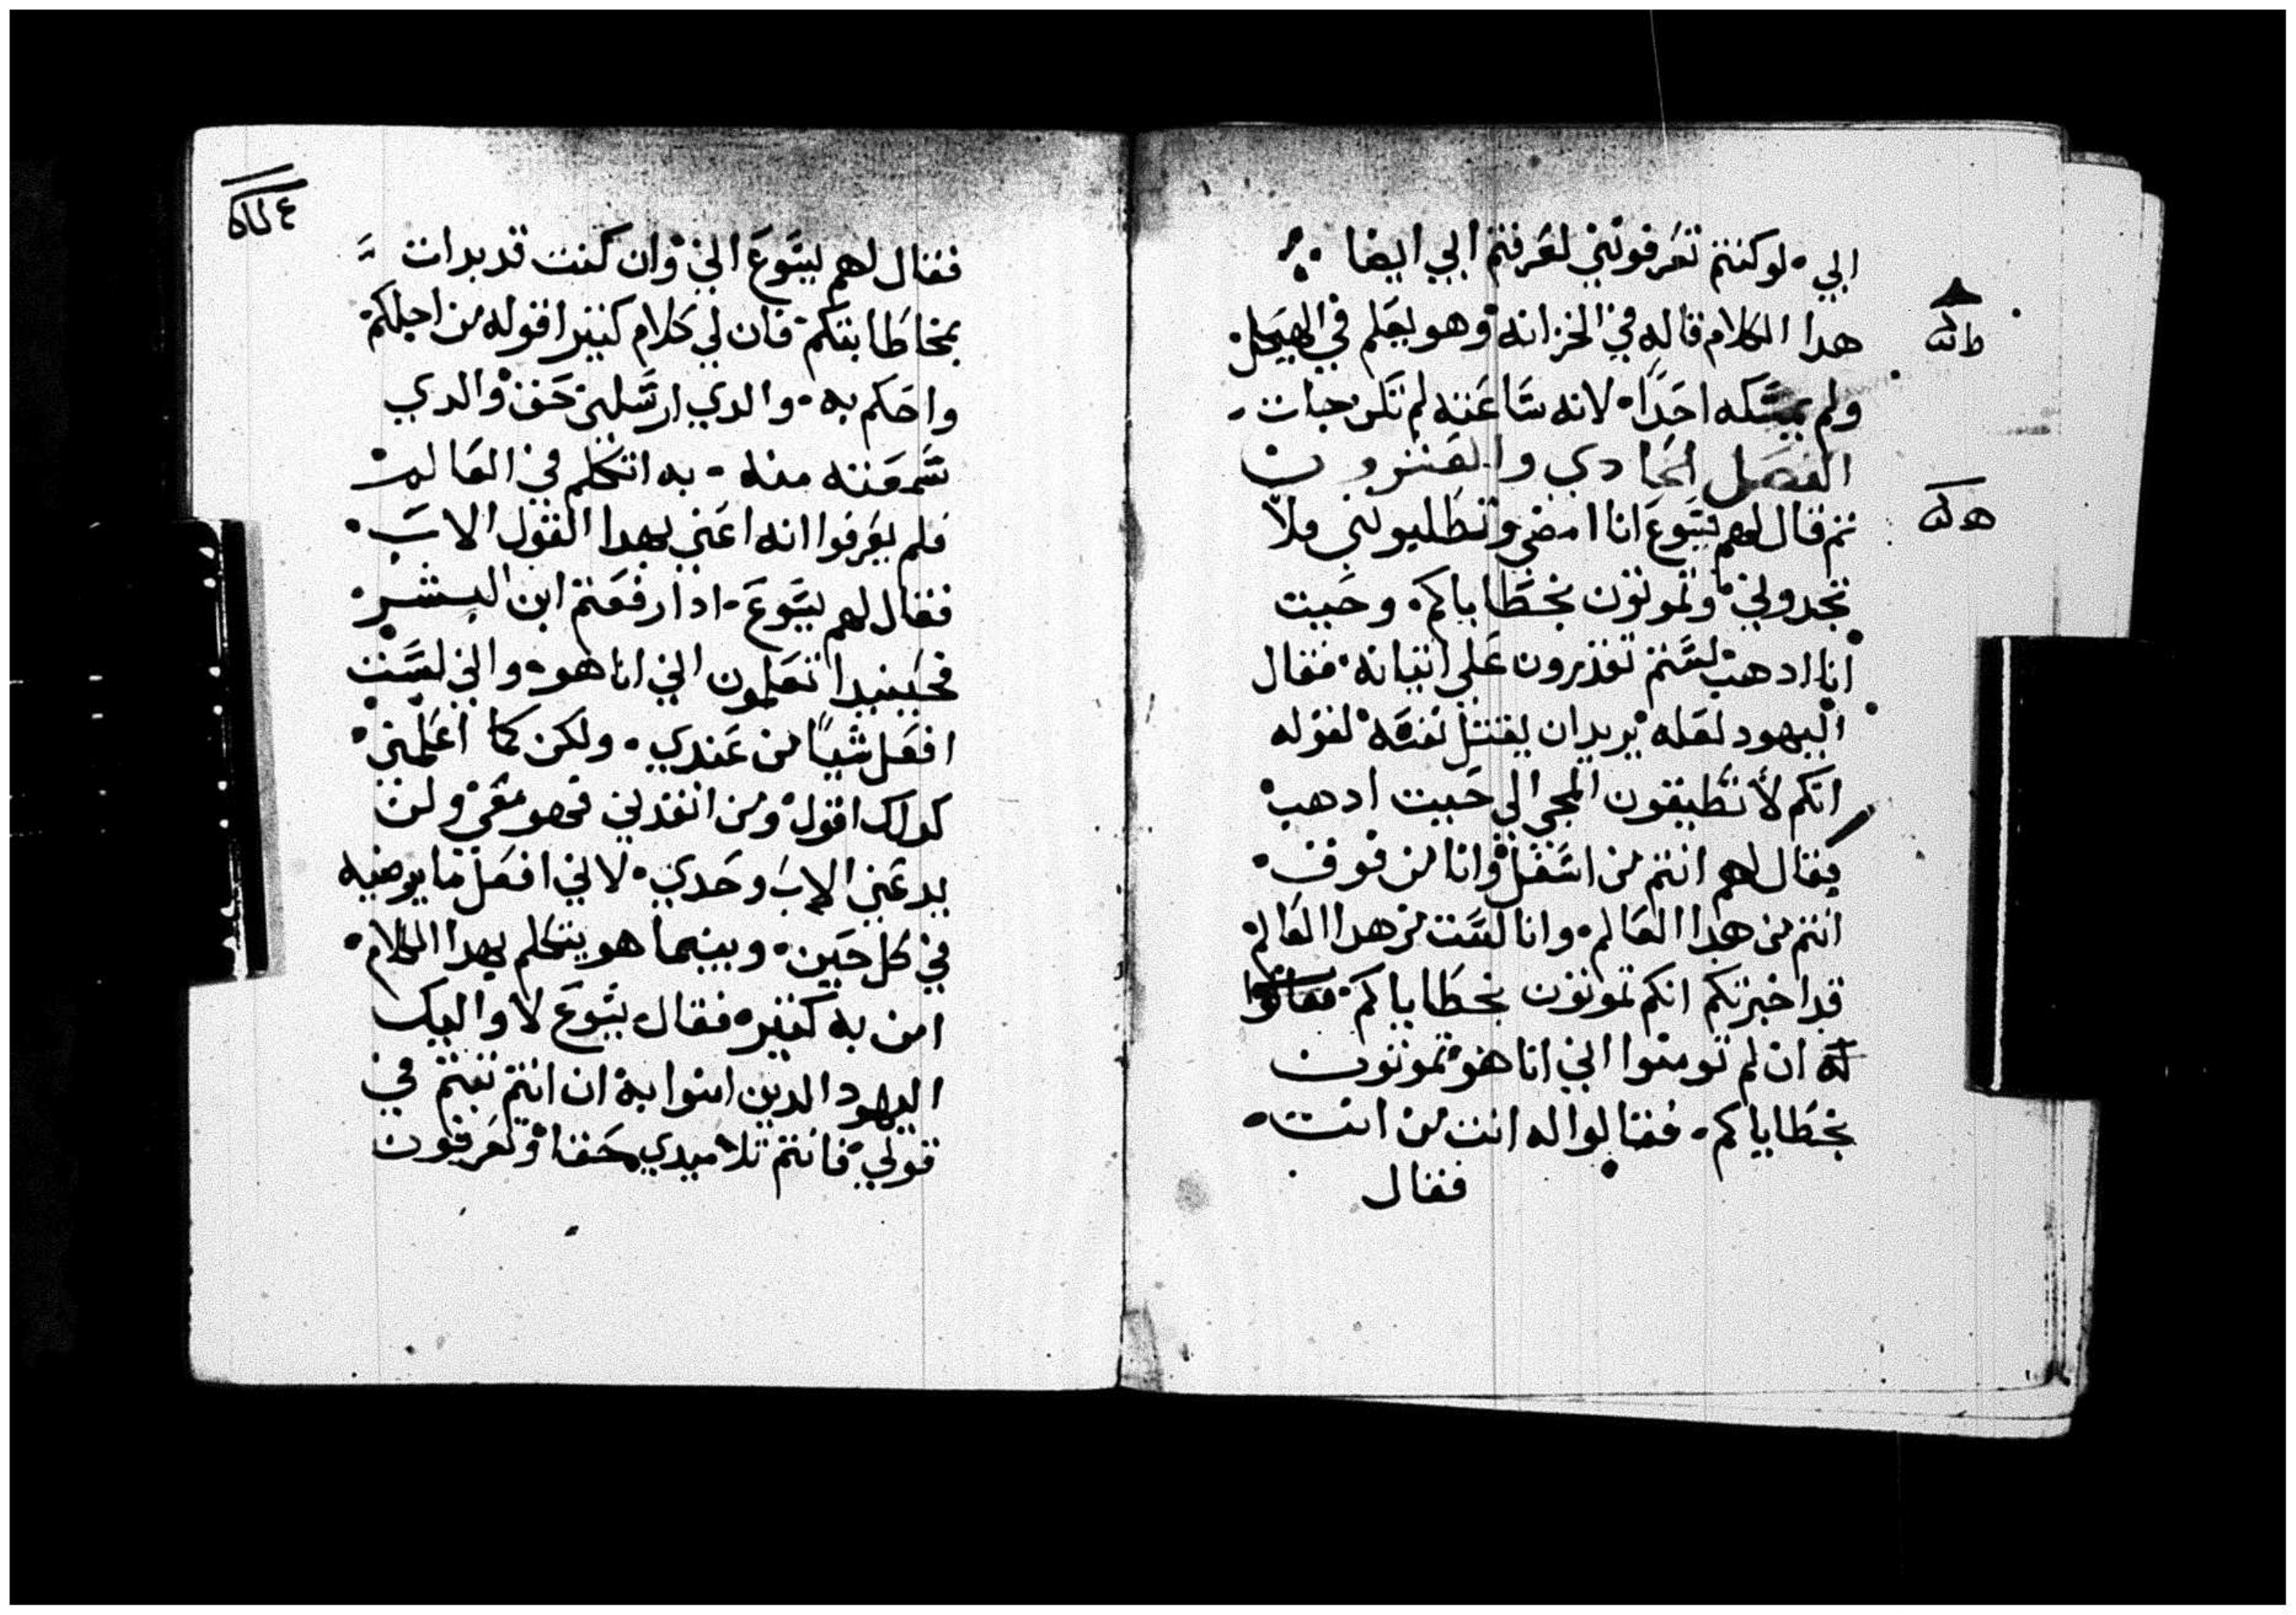 ابي۰ لو كنتم تعرفونني لعرفتم ابي ايضا ۰
هدا الكلام قاله في الخزانه وهو يعلم في الهيكل۰
ولم يمسكه احدًا۰ لانه ساعته لم تكن جات۰
الفصل الحادي والعشرون
تم قال لهم يسوع انا امضي وتطلبونني ولا
تجدوني۰ وتموتون بخطاياكم۰ وحيت
انا ادهب لستم تقدرون علي اتيانه۰ فقال
اليهود لعله يريدان يقتل نفسه لقوله
انكم لا تطيقون المجي الي حيت ادهب
فقال لهم انتم من اسفل وانا من فوق۰
انتم من هدا العالم۰ وانا لست من هدا العالم۰
قد اخبرتكم انكم تموتون بخطاياكم۰ فقالوا
له ان لم تومنوا اني انا هو تموتون
بخطاياكم۰ فقالوا له انت من انت۰
فقال
فقال لهم يسوع اني وان كنت قد بدات
بمخاطابتكم۰ فان لي كلام كتير اقوله من اجلكم۰
واحكم به۰ والدي ارسلني حق والدي
سمعته منه۰ به اتكلم في العالم
فلم يعرفوا انه اعني بهدا القول الاب۰
فقال لهم يسوع۰ ادا رفعتم ابن البشر۰
فحينيدا تعلمون اني انا هو۰ واني لست
افعل شيًا من عندي۰ ولكن كما اعلمني۰
كدلك اقول ومن انفدني فهو معي ولن
يدعني الاب وحدي۰ لاني افعل ما يرضيه
في كل حين۰ وبينما هو يتكلم بهدا الكلام۰
امن به كتير۰ فقال يسوع لاوليك
اليهود الدين امنوا به ان انتم تبتم في
قولي۰ فانتم تلاميدي حقا وتعرفون